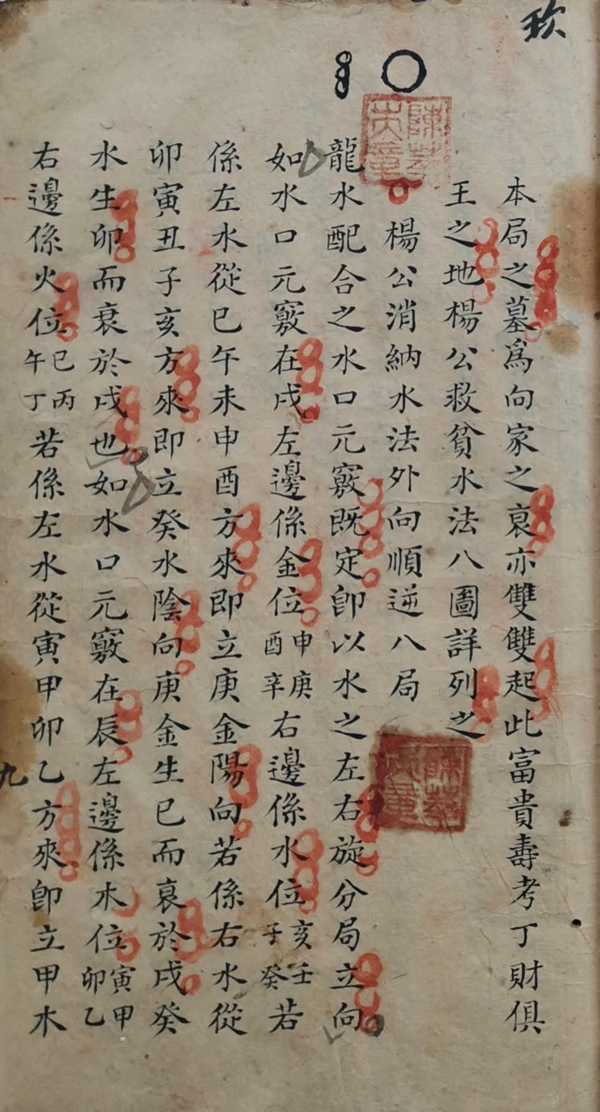 本局之墓爲向家之衰亦雙雙起此富貴壽考丁財俱
王之地楊公救貧水法八圖詳列之
楊公消納水法外向順逆八局
龍水配合之水口元竅既定卽以水之左右旋分局立向
如水口元竅在戌左邊係金位申庚酉辛右邊係水位亥壬子癸若
係左水從巳午未申酉方來即立庚金陽向若係右水從
卯寅丑子亥方來即立癸水陰向庚金生巳而衰於戌癸
水生卯而衰於戌也如水口元竅在辰左邊係木位寅甲卯乙
右邊係火位巳丙午丁若係左水從寅甲卯乙方來卽立甲木
九